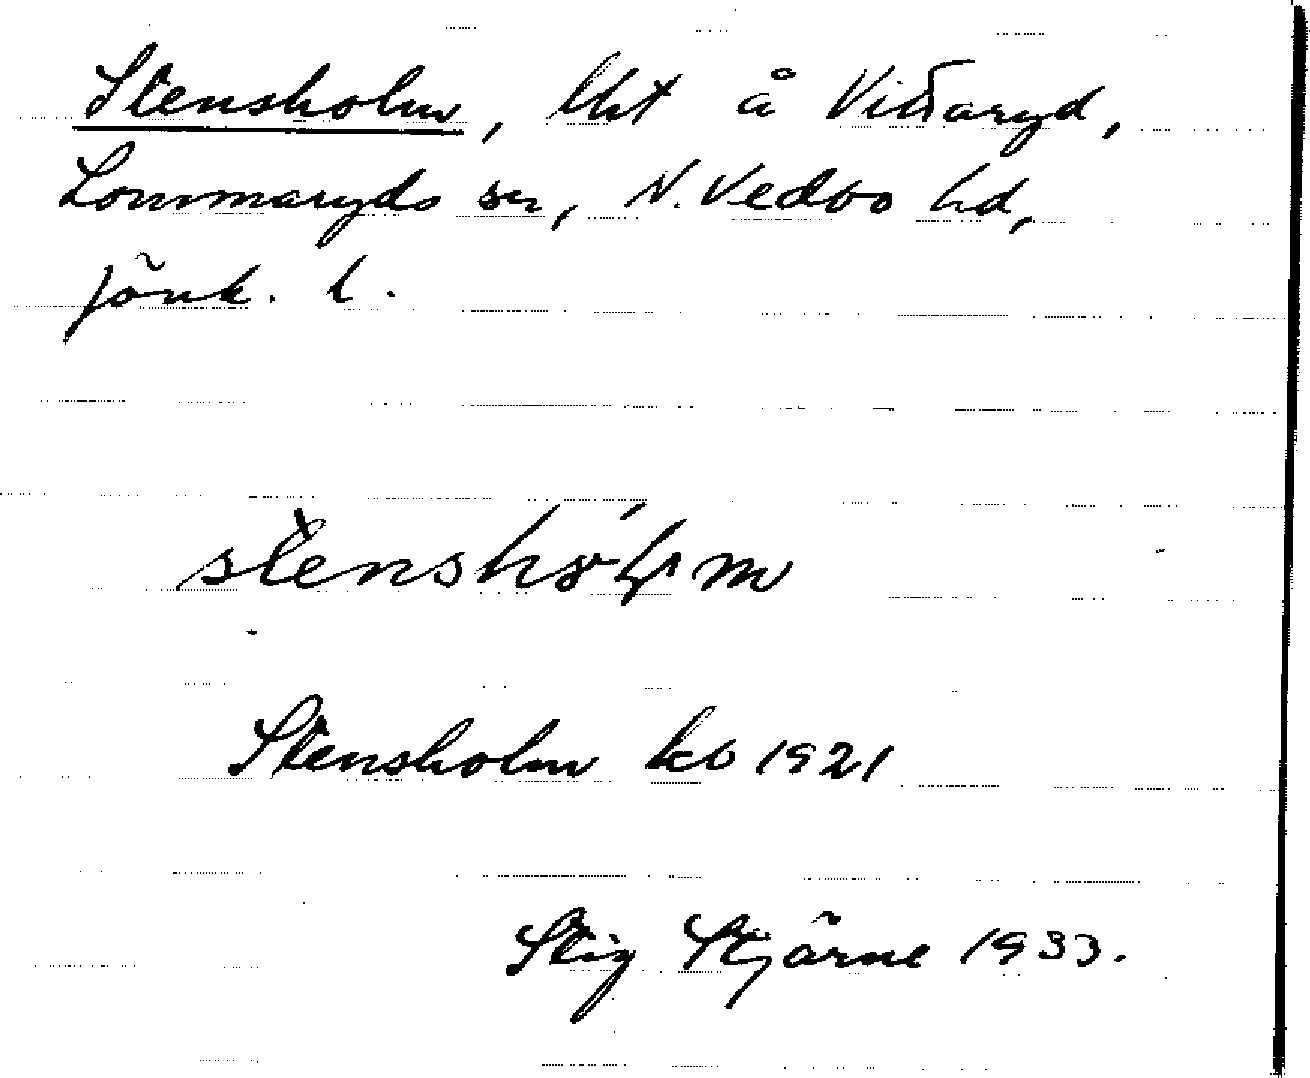 Stensholm, lht å Vittaryd,
Lommaryds sn, N. Vedbo hd,
Jönk. l.
Stensholm kb 1921
Stig Stjärne 1933.